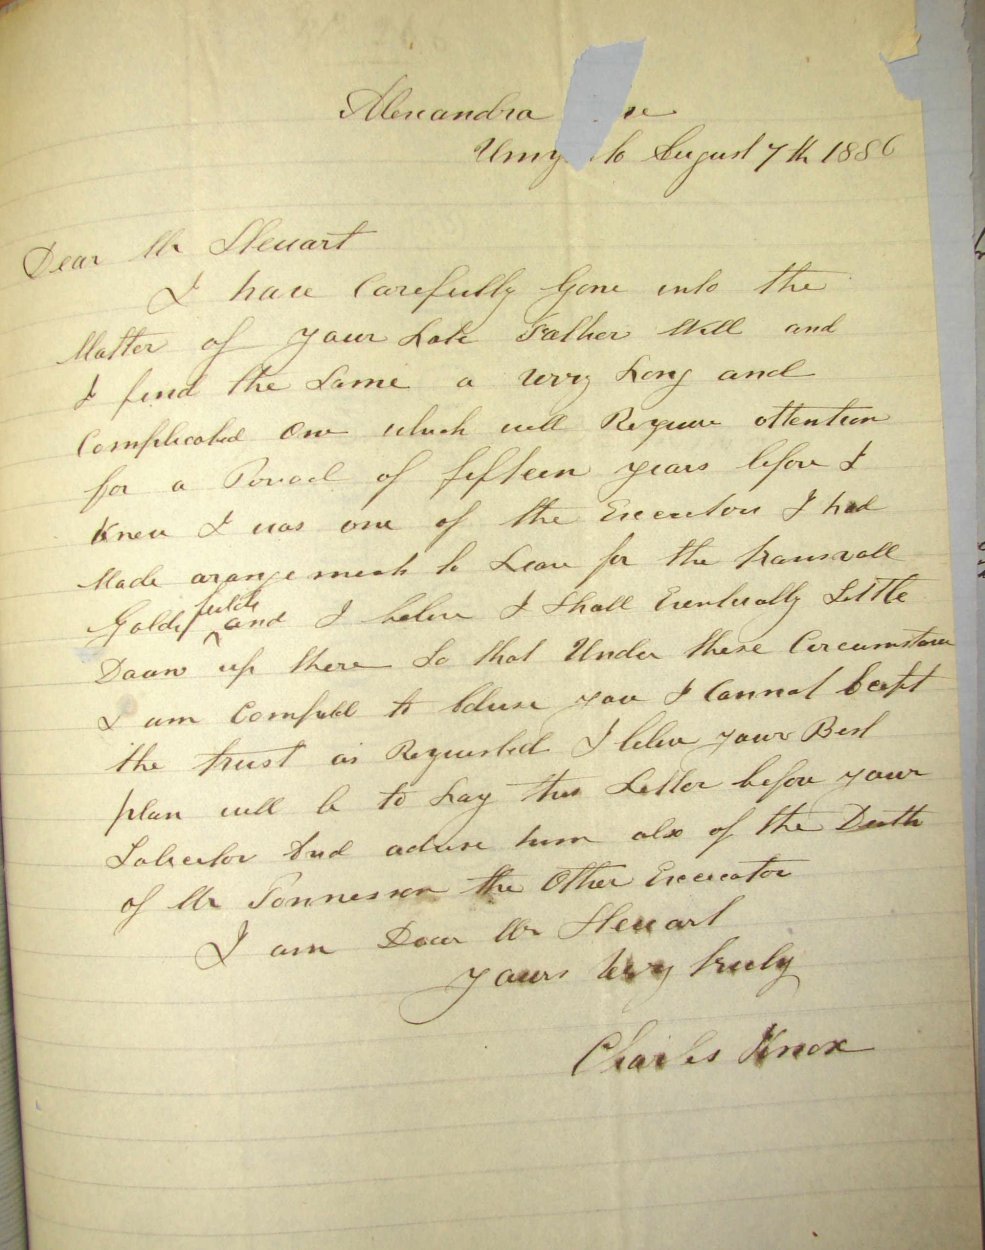 Alexandra
August 7th 1886
Dear Mr Steuart
I have Carefully Gone into the
Matter of your Late Father Will and
I find the Same a very Long and
Complicated One which will Require attention
for a Period of fifteen years before I
Knew I was one of the Executors I had
Made arangement to Leave for the transvall
Gold fields and I beleve I Shall Eventually Settle
Down up there So that Under these Circumstance
I am Compelld to advise you I Cannot Acept
the trust as Requested I beleve your Best
plan will be to Lay this Letter before your
Solicitor And advise him also of the Death
of Mr Tonnesson the Other Executor
I am Dear Mr Steuart
yours very truly
Charles Knox